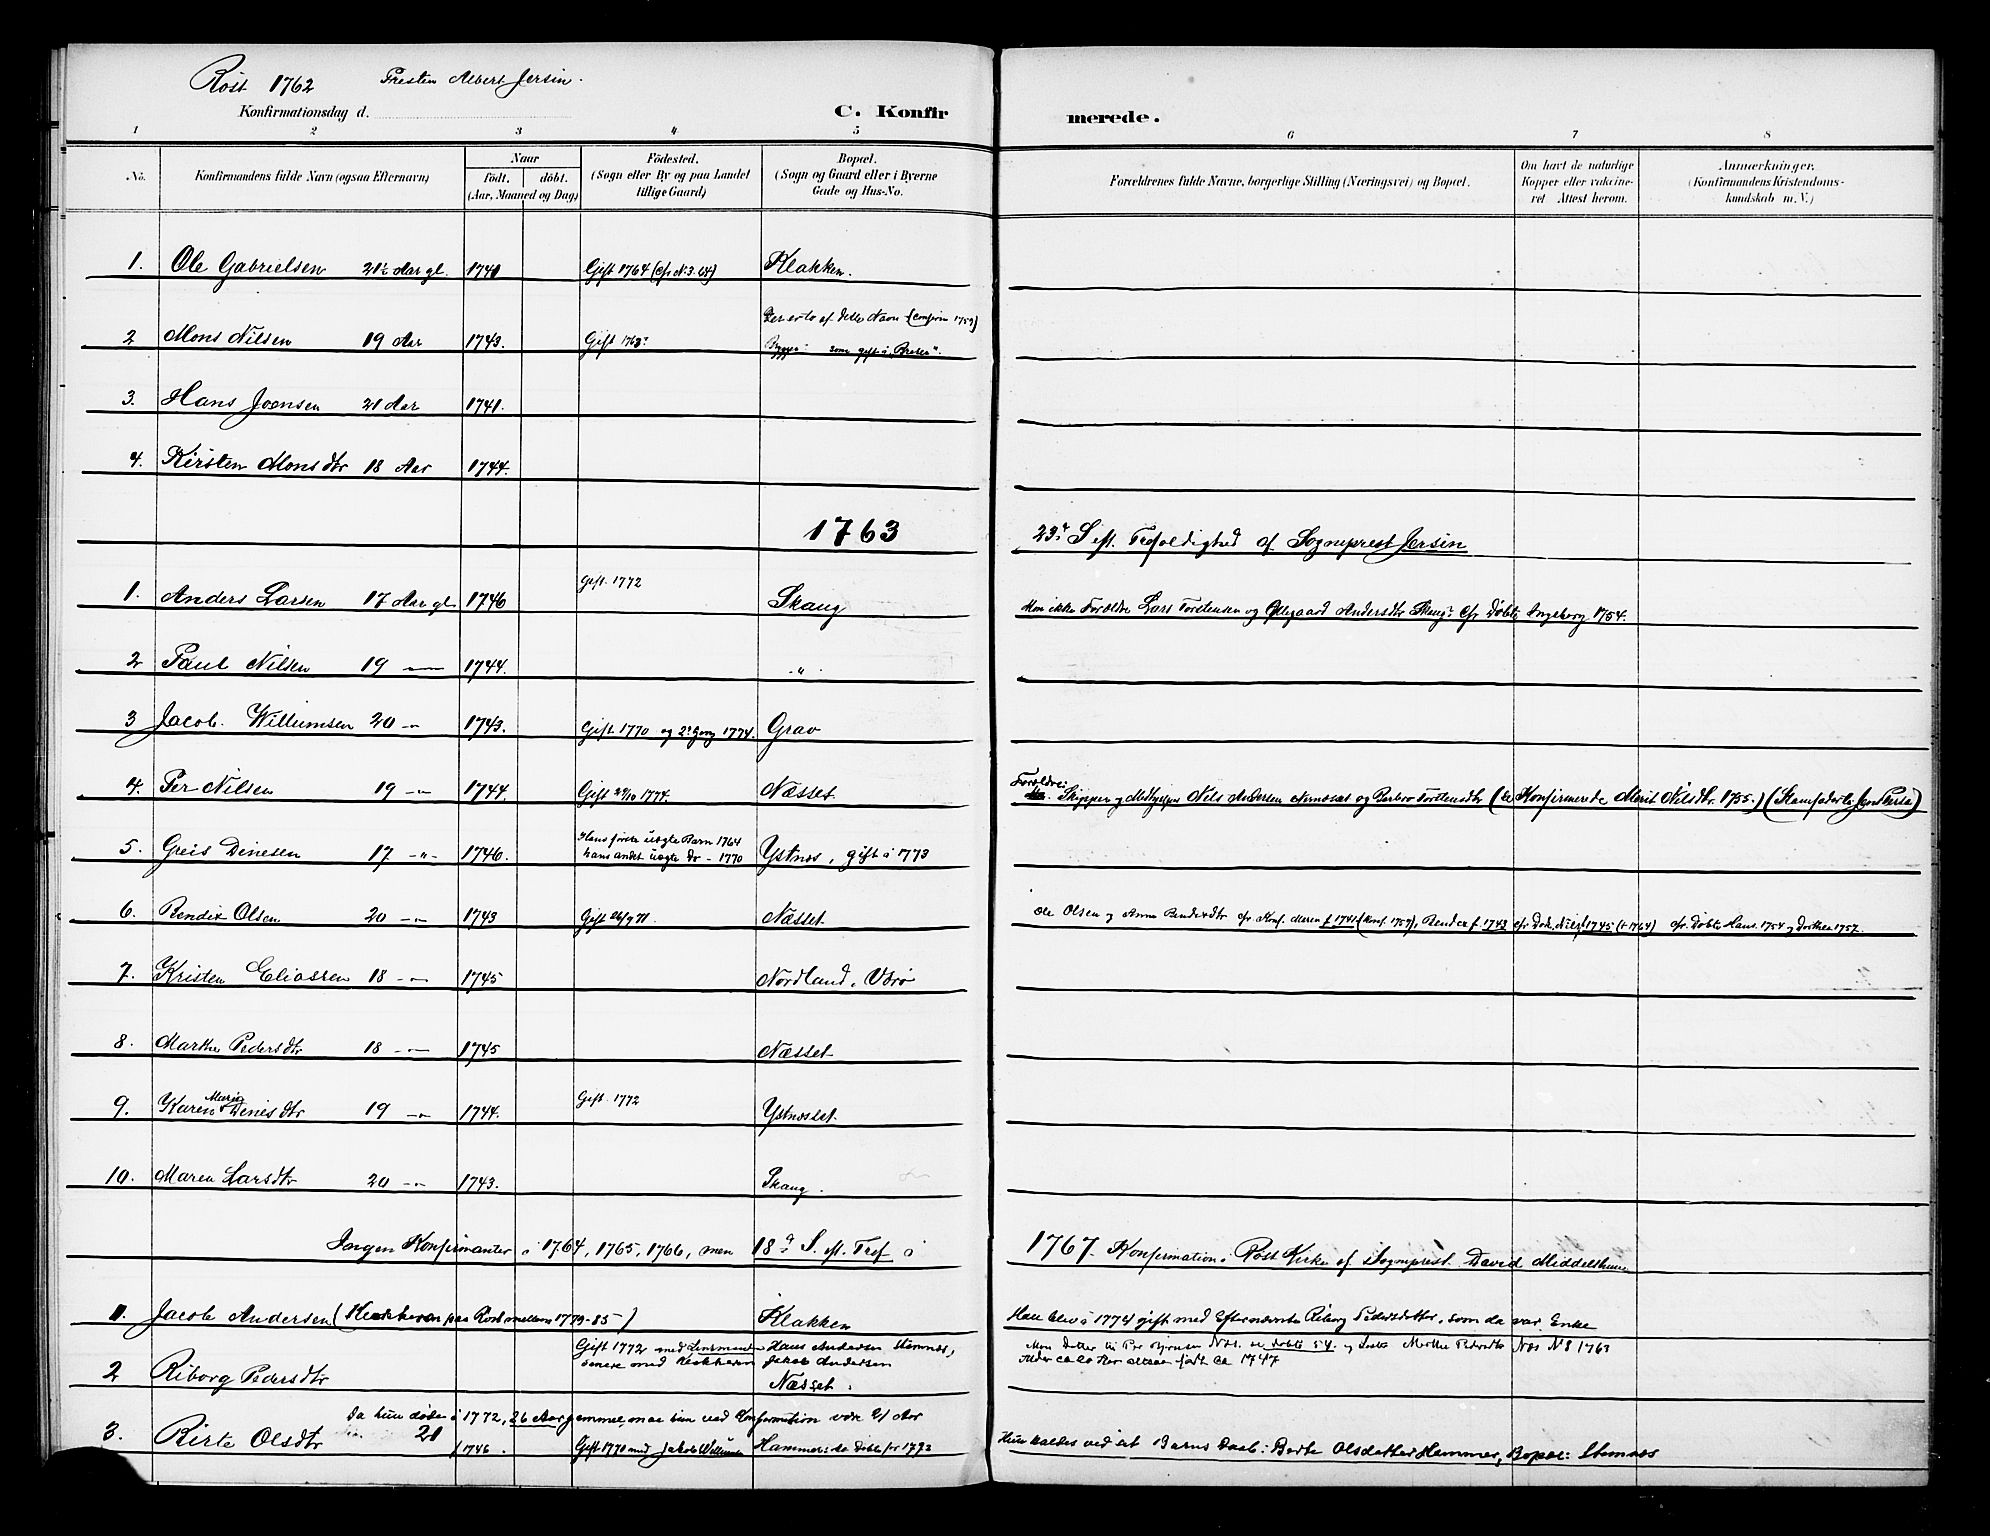 Røst 1762 Presten Albert Jersin.
Konfirmationsdag d. C. Konfir merede.
1 2 3 4 5 6 7 8
No. Konfirmandens fulde Navn (ogsaa Efternavn) Naar født. døbt. (Aar, Maaned og Dag) Fødested. (Sogn eller By og paa Landet tillige Gaard) Bopæl. (Sogn og Gaard eller i Byerne Gade og Hus-No. Forældrenes fulde Navne, borgerlige Stilling (Næringsvei) og Bopæl. Om havt de naturlige Kopper eller vaccineret Attest herom. Anmærkninger. (Konfirmandens Kristendomskundskab m. V.)
1. Ole Gabrielsen 21½ Aar gl. 1741 Gift 1764 (cfr No 3. 64) Klakken.
2 Mons Nilsen 19 Aar 1743. Gift 1763? Der er to af dette Navn (confirm 1759)
Bygger: som gift i
3. Hans Joensen 21 Aar 1741.
4. Kirsten Monsdtr 18 Aar 1744.
1763 23. S. eft. Trefoldighed af Sogneprest Jersin
1. Anders Larsen 17 Aar gl 1746 Gift. 1772 Skaug Mon ikke Forældre Lars Torstensen og Ollegaard Andersdtr Skaug? cfr Døbte Ingeborg 1754.
2 Paul Nilsen 19 — 1744. "
3 Jacob. Willumsen 20 -"- 1743. Gift 1770 og 2. Gang 1774. Grav
4. Per Nilsen 19 -"- 1744. Gift 24/10 1774. Næsset Forældre: Skipper og Medhjelper Nils Andersen Nernæset og Barbro Torstensdtr (se Konfirmerede Marit Nilsdtr. 1755.)
5. Greis Dinesen 17 -"- 1746. Hans første uægte Barn 1764
hans andet uægte do - 1770 Ystnæs, gift i 1773
6. Bendix Olsen 20 -"- 1743 Gift 26/9 71. Næsset Ole Olsen og Anne Bendixdtr cfr Konf. Maren f. 1741 (Konf. 1757), Bendix f. 1743 cfr Døde, Nils f 1745 (+ 1764) cfr. Døbte Hans. 1754 og Dorthea 1757.
7. Kristen Eliassen 18 -"- 1745 Nordland, Værø
8. Marthe Pedersdtr 18 -"- 1745 Næsset
9. Karen Marie Dinesdtr 19 -"- 1744. Gift. 1772 Ystnæsset
10. Maren Larsdtr 20 -"- 1743. Skaug.
Ingen Konfirmanter i 1764, 1765, 1766, men 18d S. eft. Tref i 1767. Konfirmation i Røst Kirke af Sogneprest. David Middelthun
1. Jacob Andersen (Kirkeværge paa Røst mellem 1779-85) Klakken Han blev i 1774 gift med Efternævnte Riborg Pedersdatter, som da var Enke
2 Riborg Pedersdtr Gift 1772 med Lensmand Hans Andersen Stamnæs,
senere med Kirkeværge Jakob Andersen
Næsset. Mon Datter til Per Bjørnsen Næs. se døbte 54. og Søster Marthe Pedersdtr Næs No 8 1763
Alder ca 20 Aar altsaa født ca 1747
3. Birte Olsdtr Da hun døde i 1772, 26 Aar gammel, maa hun ved Konfirmation være 21 Aar
21 f 1746. Gift 1770 med Jakob Willumsen Hammer: se Døbte for 1772 Hun kaldes ved sit Barns Daab: Berte Olsdatter Hammer, Bopæl: Stamnæs